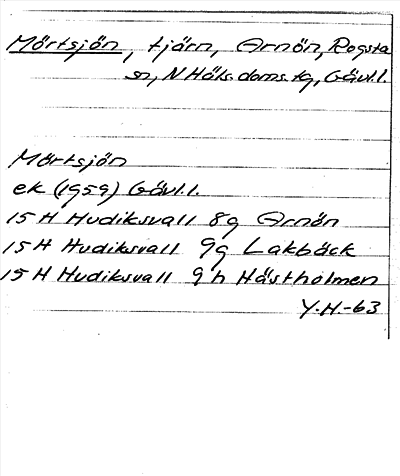 Mörtsjön, tjärn, Arnön, Rogsta
sn, N Häls. doms. tg, Gävl.l.
Mörtsjön
ek (1959) Gävl.l.
15 H Hudiksvall 8g Arnön
15 H Hudiksvall 9g Lakbäck
15 H Hudiksvall 9h Hästholmen
Y.H.-63